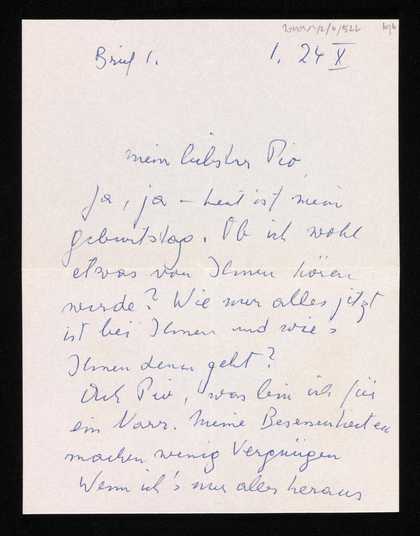 Brief 1.
1. 24 X
mein liebster Pio,
Ja, ja – heut ist mein
Geburtstag. Ob ich wohl
etwas von Ihnen hören
werde? Wie nur alles jetzt
ist bei Ihnen und wie's
Ihnen denn geht?
Ach Pio, was bin ich für
ein Narr. Meine Besessenheiten
machen wenig Vergnügen
Wenn ich's nur alles heraus